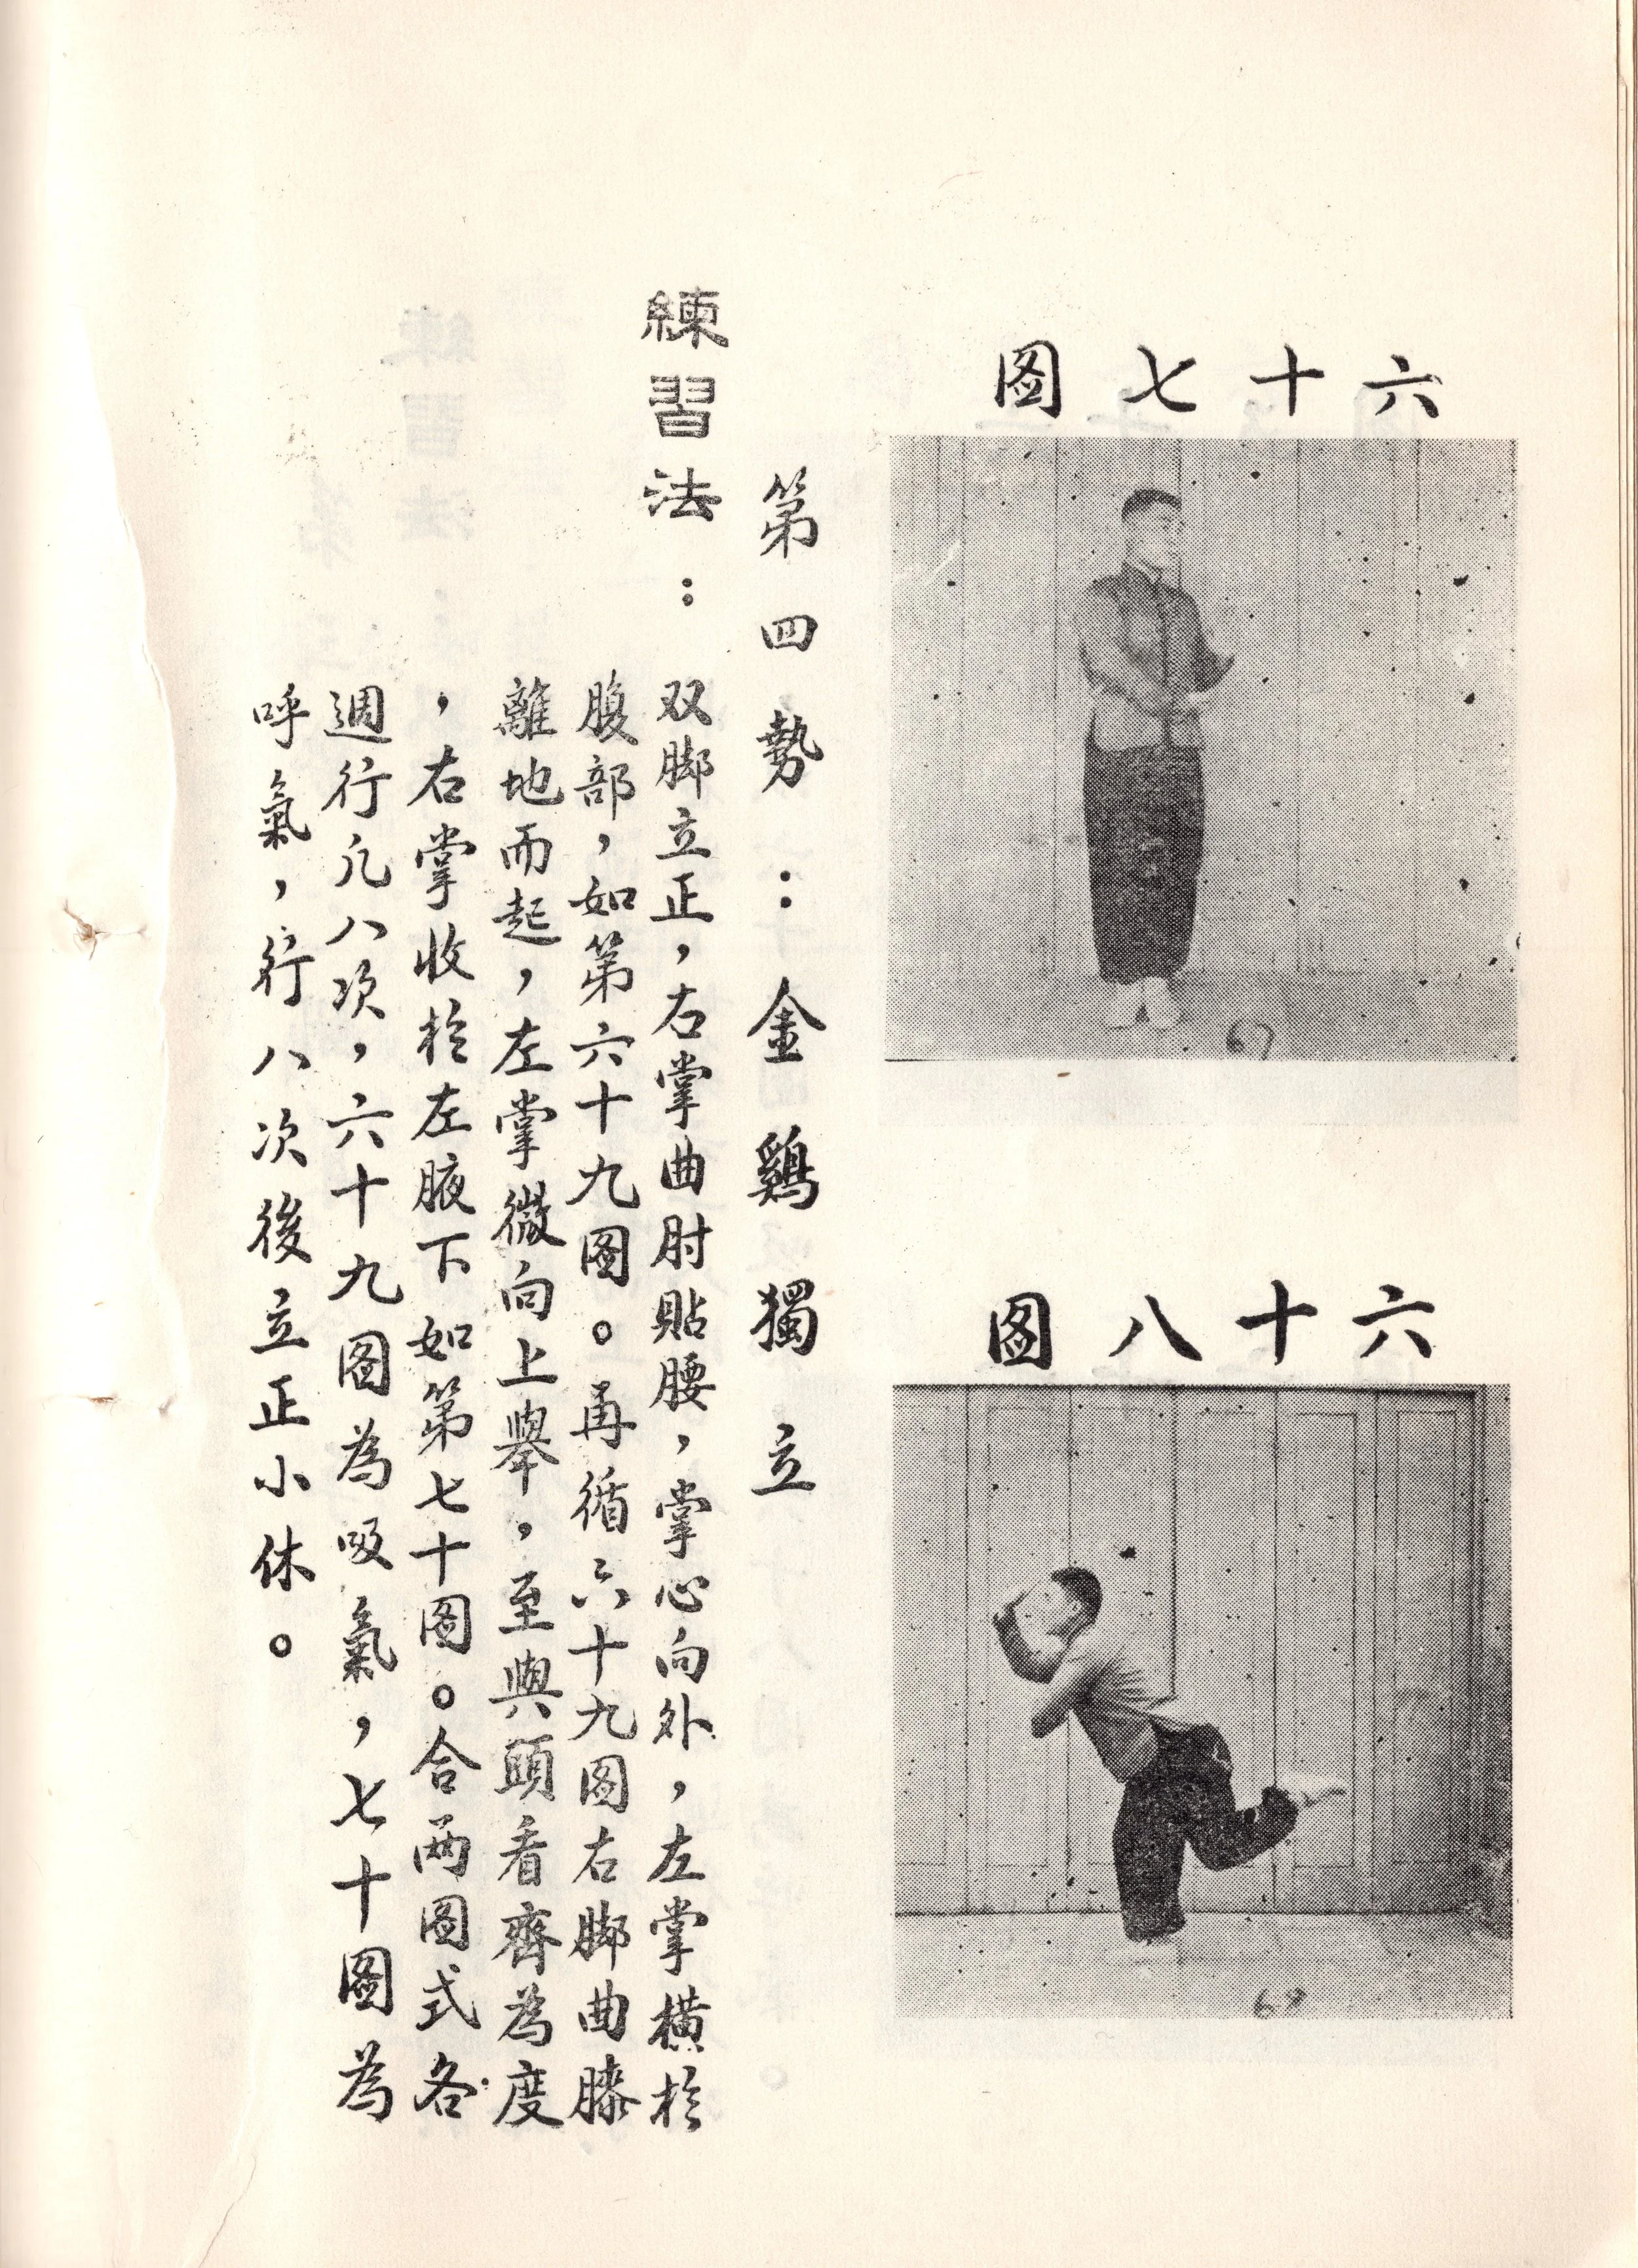 六十七图
67
六十八图
68
第四勢：金鷄獨立
練習法：
双脚立正，右掌曲肘貼腰，掌心向外，左掌横於
腹部，如第六十九图。再循六十九图右脚曲膝
離地而起，左掌微向上舉，至與頭看齊為度
，右掌收於左腋下如第七十图。合两图式各
週行凢八次，六十九图為吸氣，七十图為
呼氣，行八次後立正小休。